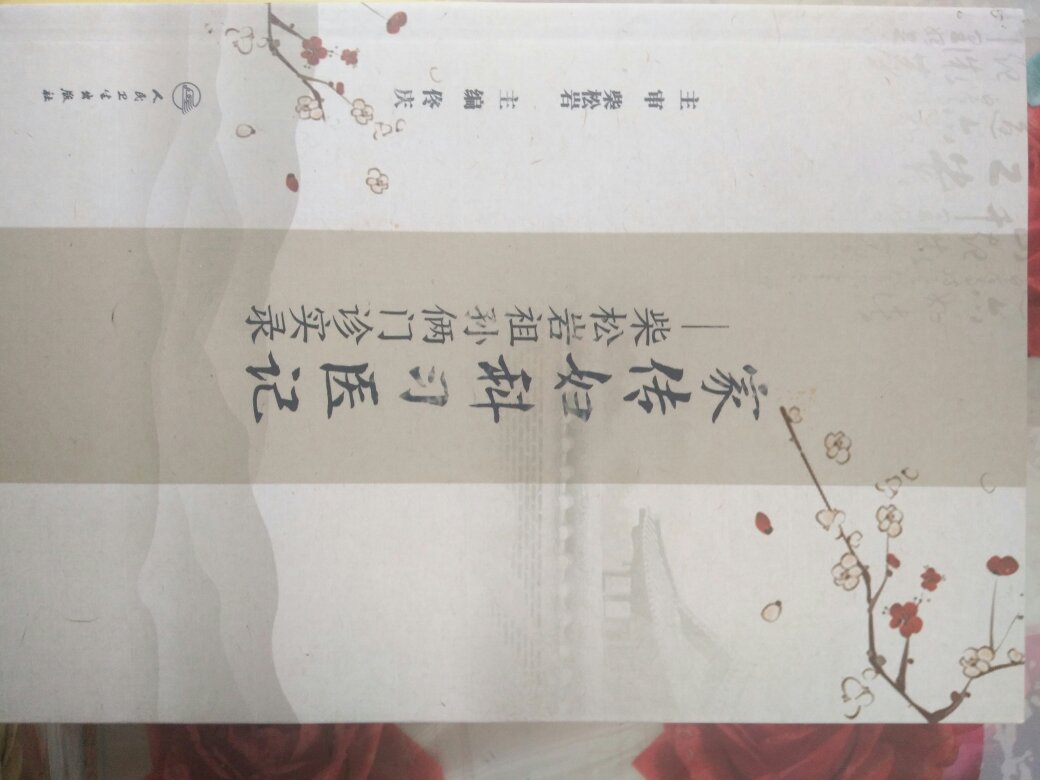 家传妇科习医记
——柴松岩祖孙俩门诊实录
主审 柴松岩
主编 佟庆
人民卫生出版社